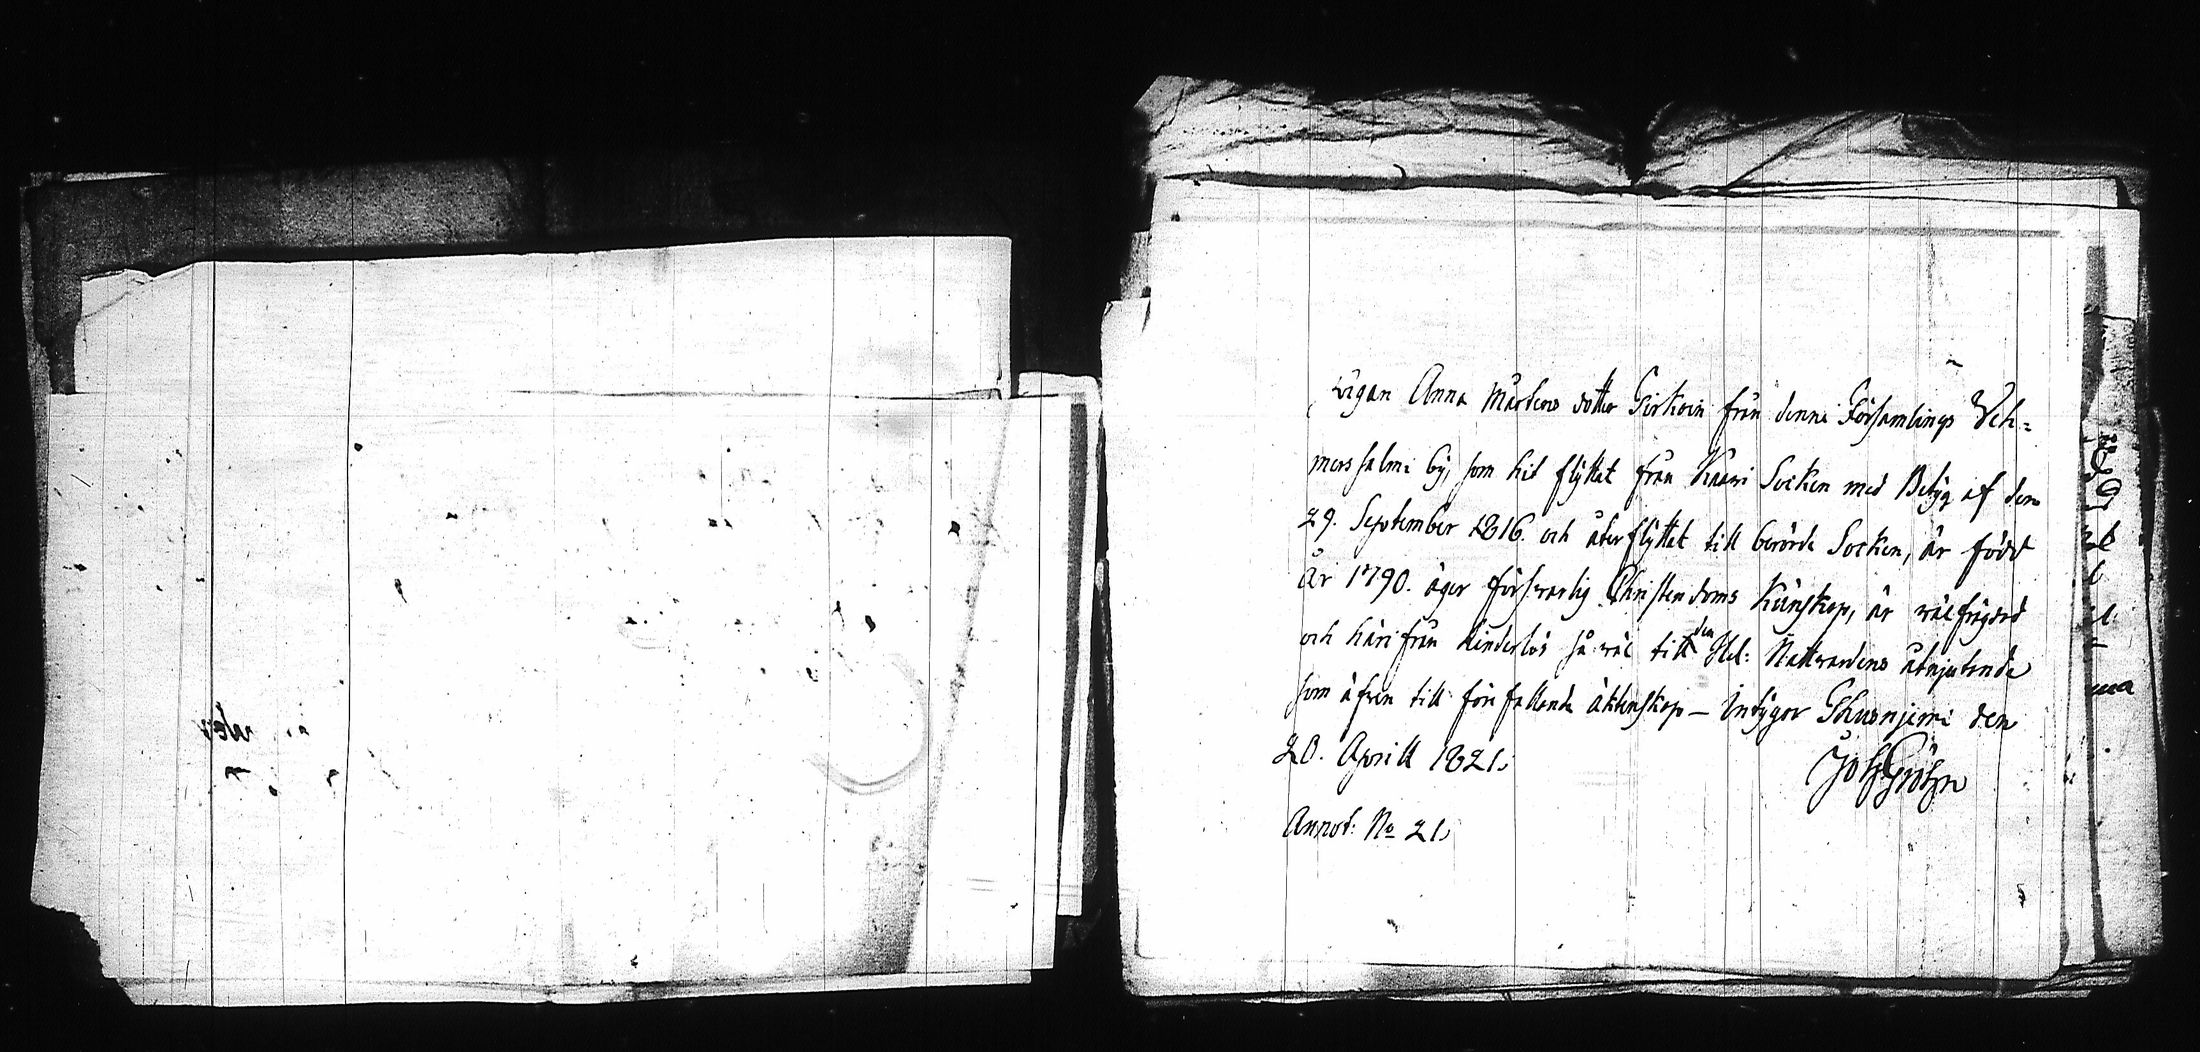 Pigan Anna Mårtens dotter Girkoin från denna Församlings Veh=
mers salmi by, som hit flyttat från Kaavi Socken med Betÿg af den
29. September 1816. och återflyttat till berörde Socken, är född
År 1790. äger försvarlig Christendoms Kunskap, är välfrägdad
och härifrån hinderlös så väl till den Hel: Nattvardens utnjutende
som äfven till förefallande äktenskap – Intygar Idensjerwi den
20. Aprill 1821.
Joh Gröhn
Annot: No 21.